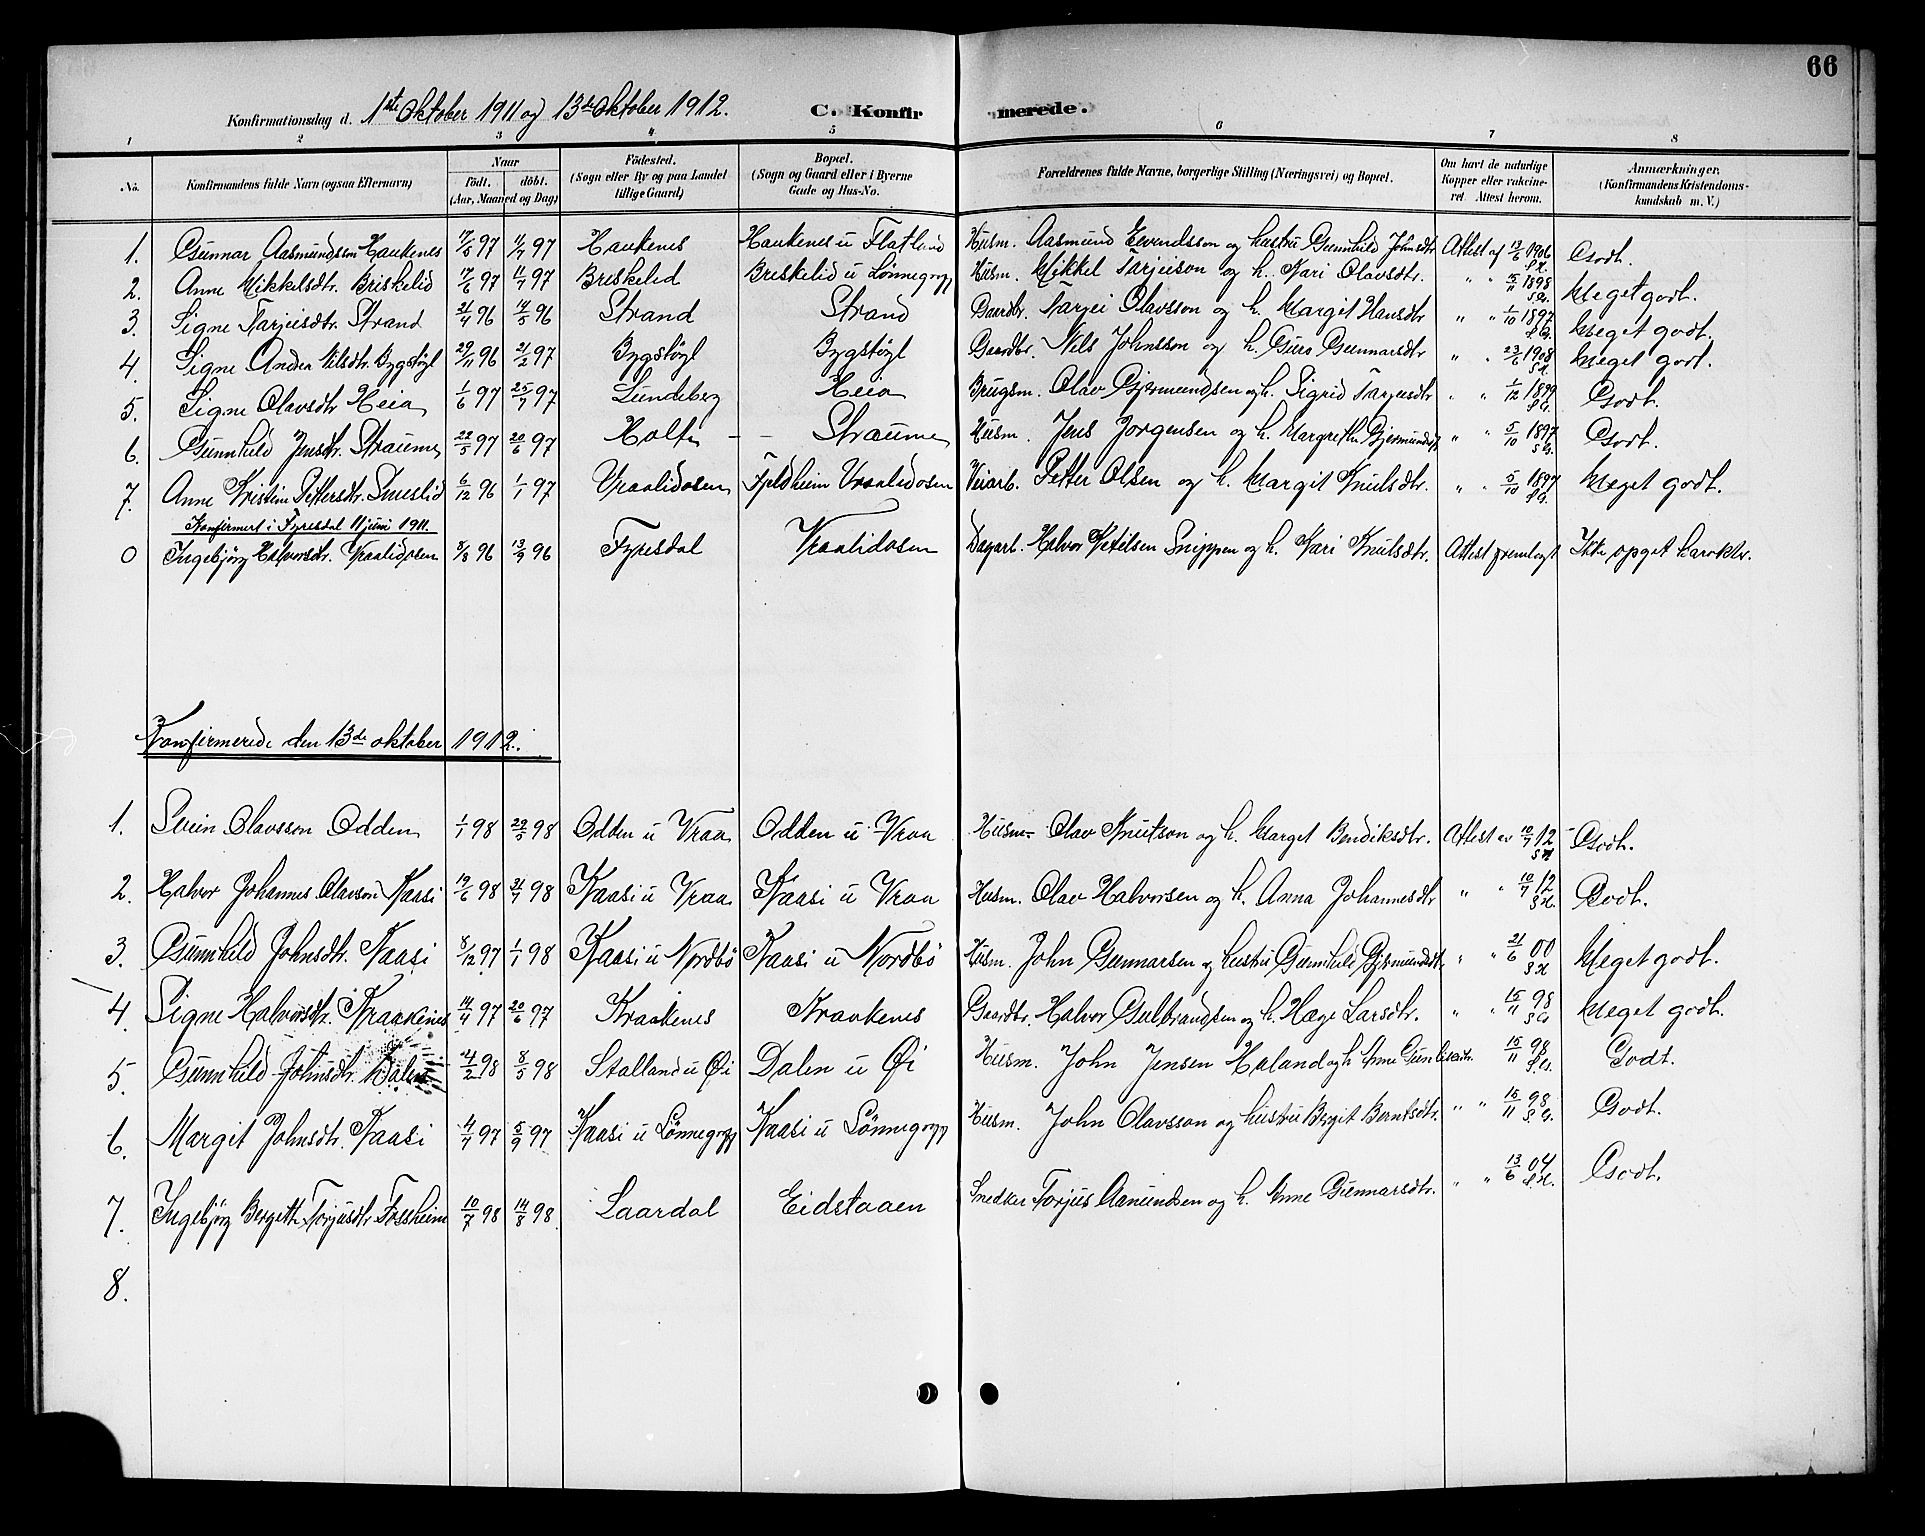 66
Konfirmationsdag d. 1ste Oktober 1911 og 13de Oktober 1912. C. Konfirmerede.
1 2 3 4 5 6 7 8
No. Konfirmandens fulde Navn (ogsaa Efternavn) Naar födt. döbt. (Aar, Maaned og Dag) Födested. (Sogn eller By og paa Landet tillige Gaard) Bopæl. (Sogn og Gaard eller i Byerne Gade og Hus-No. Forældrenes fulde Navne, borgerlige Stilling (Næringsvei) og Bopæl. Om havt de naturlige Kopper eller vakcineret. Attest herom. Anmærkninger. (Konfirmandens Kristendomskundskab m. V.)
1. Gunnar Aasmundsen Haukenes 97 97 Haukenes Haukenes u Flatland Husm. Aasmund Eivindsson og hustru Gunnhild Johnsdtr Attest af 13/6 1906 Godt.
2. Anne Mikkelsdtr. Briskelid 17/6 97 11/7 97 Briskelid Breskelid u Lönnegrav Husm. Mikkel Tarjeison og h. Kari Olavsdtr. " " 15/11 1898 Meget godt.
3. Signe Tarjeisdtr. Strand 21/4 96 14/5 96 Strand Strand Gaardbr. Tarjei Olavsson og h. Margit Hansdtr " " 1/10 1897 Meget godt.
4. Signe Andrea Nilsdtr. Bygstöyl 29/11 96 21/2 97 Bygstöyl Bygstöyl Gaardbr. Nils Johnsson og h. Guro Gunnarsdtr " " 23/6 1908 Meget godt.
5. Signe Olavsdtr Heia 1/6 97 25/7 97 Lundeberg Heia Brugsm. Olav Gjermundsen og h. Sigrid Tarjeisdtr " " 1/12 1899 Godt.
6. Gunnhild Jensdtr. Straume 22/5 97 20/6 97 Holte - - Straume Husm. Jens Jorgensen og h. Margrethe Gjermundsdtr " " 5/10 1897 Godt.
7. Anne Kristine Pettersdtr. Smeslid 6/12 96 1/1 97 Vraalidosen Fjeldheim Vraalidosen Veiarb. Petter Olsen og h. Margit Knutsdtr. " " 5/10 1897 Meget godt.
Konfirmert i Fyresdal 11 juni 1911.
0 Ingebjörg Halvorsdtr. Vraalidosen 8/8 96 13/9 96 Fyresdal Vraalidosen Dagarb. Halvor Ketilsen Snippen og h. Kari Knutsdtr. Attest fremlagt Ikke opget karakter.
Konfirmerede den 13de oktober 1912.
1. Svein Olavsson Odden 1/1 98 29/5 98 Odden u Vraa Odden u Vraa Husm. Olav Knutson og h. Marget Bendiksdtr. Attest av 10/7 12 Godt.
2. Halvor Johannes Olavson Kaasi 19/6 98 31/7 98 Kaasi u Vraa Kaasi u Vraa Husm. Olav Halvorsen og h. Anna Johannesdtr " " 10/7 12 Godt.
3. Gunnhild Johnsdtr. Kaasi 8/12 97 1/1 98 Kaasi u Nordbö Kaasi u Nordbö Husm. John Gunnarsen og hustru Gunnhild Gjermundsdtr. " " 21/6 00 Meget godt.
4. Signe Halvorsdtr. Kraakenes 14/4 97 20/6 97 Kraakenes Kraakenes Gaardbr. Halvor Gulbrandsen og h. Hæge Larsdtr. " " 15/11 98 Meget godt.
5. Gunnhild Johnsdtr. Dalen 24/2 98 8/5 98 Stalland u Øi Dalen u Øi Husm. John Jensen Haland og h Anne 15/11 98 Godt.
6. Margit Johnsdtr. Kaasi 4/7 97 5/9 97 Kaasi u Lönnegrav Kaasi u Lönnegrav Husm. John Olavsson og hustru Bergit Berntsdtr. " " 15/11 98 Godt.
7. Ingebjörg Bergitte Torjusdtr Fossheim 10/7 98 14/8 98 Laardal Eidstaaen Snedker Torjus Aanundsen og h. Anne Gunnarsdtr. " " 13/6 04 Godt.
8.